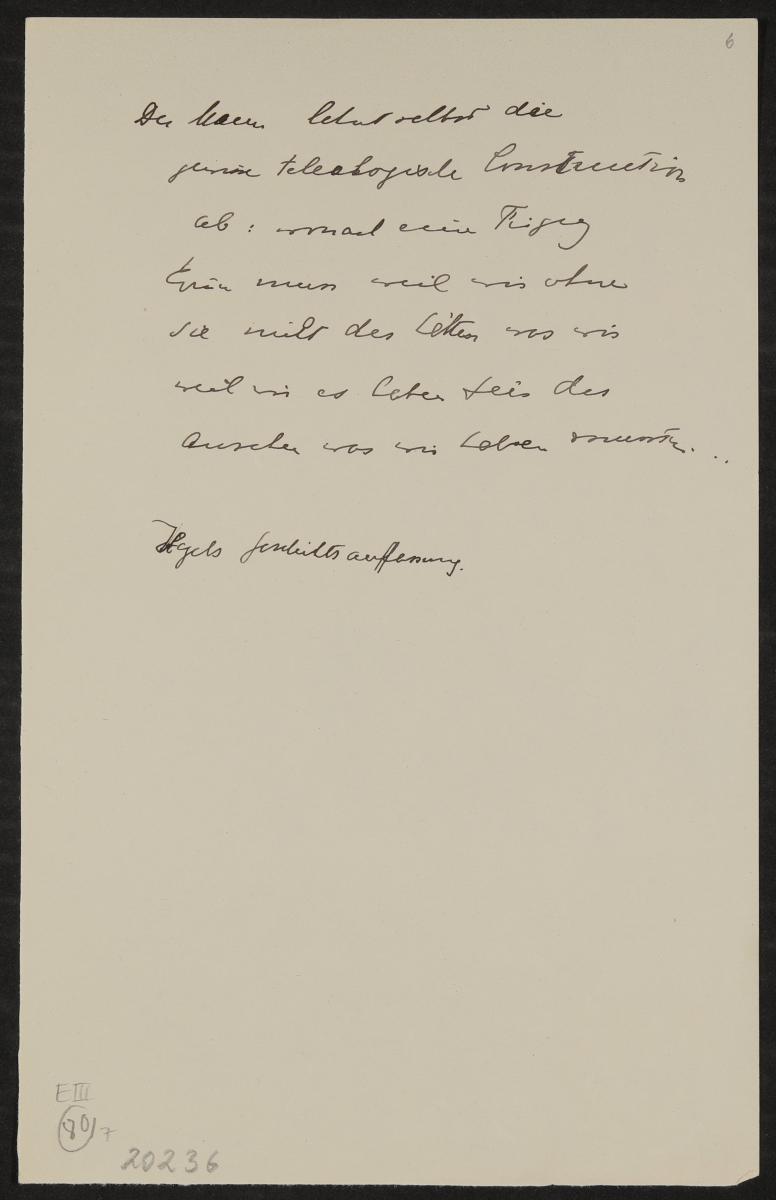 6
Der Mann lehnt selbst die
gewisse teleologische Construction
ab: wonach eine
muss weil wir ohne
sie nicht das hätten was wir
weil wir es haben
was wir haben mussten...
Hegels Geschichtsauffassung.
E III
80/7
20236